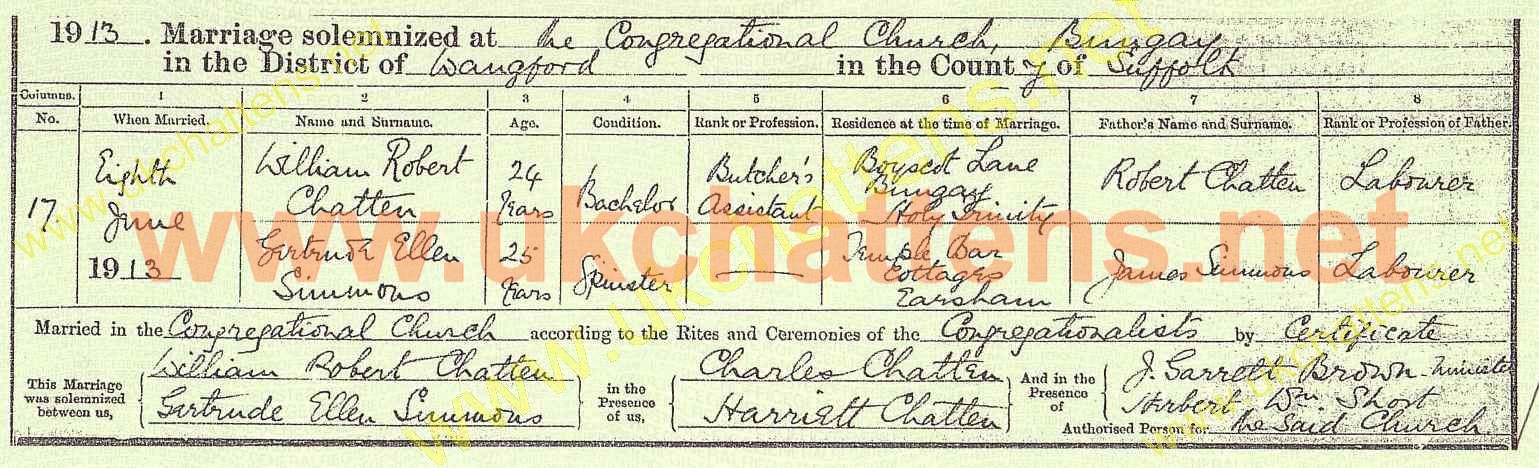 1913. Marriage solemnized at the Congregational Church, Bungay
in the District of Wangford in the County of Suffolk
Columns. 1 2 3 4 5 6 7 8
No. When Married. Name and Surname. Age. Condition. Rank or Profession. Residence at the time of Marriage. Father's Name and Surname. Rank or Profession of Father.
17 Eighth June 1913
William Robert Chatten
24 Years
Bachelor
Butcher's Assistant
Boyscot Lane
Bungay
Holy Trinity
Robert Chatten
Labourer
Gertrude Ellen Simmons
25 Years
Spinster
———
Temple Bar
Cottages
Earsham
James Simmons
Labourer
Married in the Congregational Church according to the Rites and Ceremonies of the Congregationalists by Certificate
This Marriage
was solemnized
between us,
William Robert Chatten
Gertrude Ellen Simmons
in the
Presence
of us,
Charles Chatten
Harriett Chatten
And in the
Presence
of
J. Garrett Brown - Minister
Herbert Wm Short
Authorised Person for the Said Church.
www.ukchattens.net
www.ukchattens.net
www.ukchattens.net
www.ukchattens.net